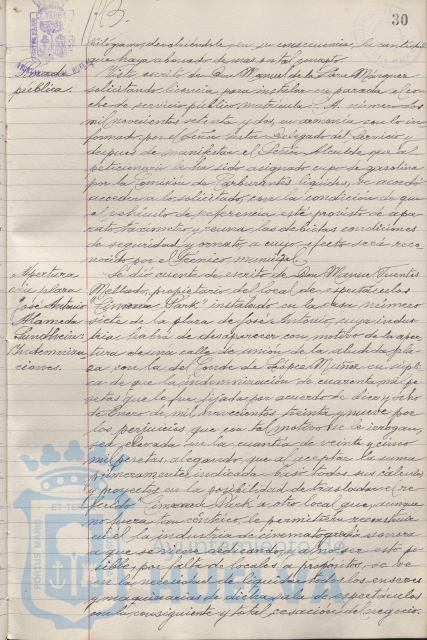 30
kilógramo, devolviéndosele en su consecuencia, la cantidad
que haya abonado de mas por tal concepto.
Parada
pública.
Visto escrito de Don Manuel de la Torre Márquez
solicitando licencia para instalar en parada el co-
che de servicio público, matrícula números dos
mil novecientos setenta y dos, en armonía con lo in-
formado por el Señor Gestor Delegado del Servicio y
despues de manifestar el Señor Alcalde que al
peticionario le ha sido asignado cupo de gasolina
por la Comisión de Carburantes líquidos, se acordó
acceder a lo solicitado, con la condición de que
el vehículo de referencia esté provisto de apa-
rato taxímetro y reuna las debidas condiciones
de seguridad y ornato, a cuyo efecto será reco-
nocido por el técnico municipal.
Apertura
vía plaza
José Antonio
Alameda
Sundheim:
Indemniza
ciones.
Se dió cuenta de escrito de Don Manuel Fuentes
Mellado, propietario del local de espectáculos
"Cinema Park" instalado en la casa número
siete de la plaza de José Antonio, cuya indus-
tria habrá de desaparecer con motivo de la aper-
tura de una calle de unión de la aludida pla-
za con la de Conde de López Muñoz, en súpli-
ca de que la indemnización de cuarenta mil pe-
setas que le fue fijada por acuerdo de diez y ocho
de Enero de mil novecientos treinta y nueve por
los perjuicios que con tal motivo se le irrogan,
sea elevada en la cuantía de veinte y cinco
mil pesetas, alegando que al aceptar la suma
primeramente indicada basó todos sus cálculos
y proyectos en la posibilidad de trasladar el re-
ferido Cinema Park a otro local que, aunque
no fuera tan céntrico, le permitiera reconstruir
en él la industria cinematográfica sonora
a que se viene dedicando, y al no ser esto po-
sible, por falta de locales a propósitos, se ve
en la necesidad de liquidar todos los enseres
y maquinarias de dicha sala de espectáculos
con la consiguiente y total cesación de negocio.
PORTUS MARIS ET TERRAE
Ayuntamiento de